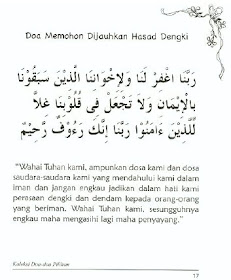 Doa Memohon Dijauhkan Hasad Dengki
رَبَّنَا اغْفِرْ لَنَا وَلِإِخْوَانِنَا الَّذِينَ سَبَقُوْنَا
بِالْإِيمَانِ وَلَا تَجْعَلْ فِي قُلُوْبِنَا غِلًّا
لِّلَّذِيْنَ ءَامَنُوْا رَبَّنَا إِنَّكَ رَءُوْفٌ رَّحِيْمٌ
"Wahai Tuhan kami, ampunkan dosa kami dan dosa
saudara-saudara kami yang mendahului kami dalam
iman dan jangan engkau jadikan dalam hati kami
perasaan dengki dan dendam kepada orang-orang
yang beriman. Wahai Tuhan kami, sesungguhnya
engkau maha mengasihi lagi maha penyayang."
Koleksi Doa-doa Pilihan
17